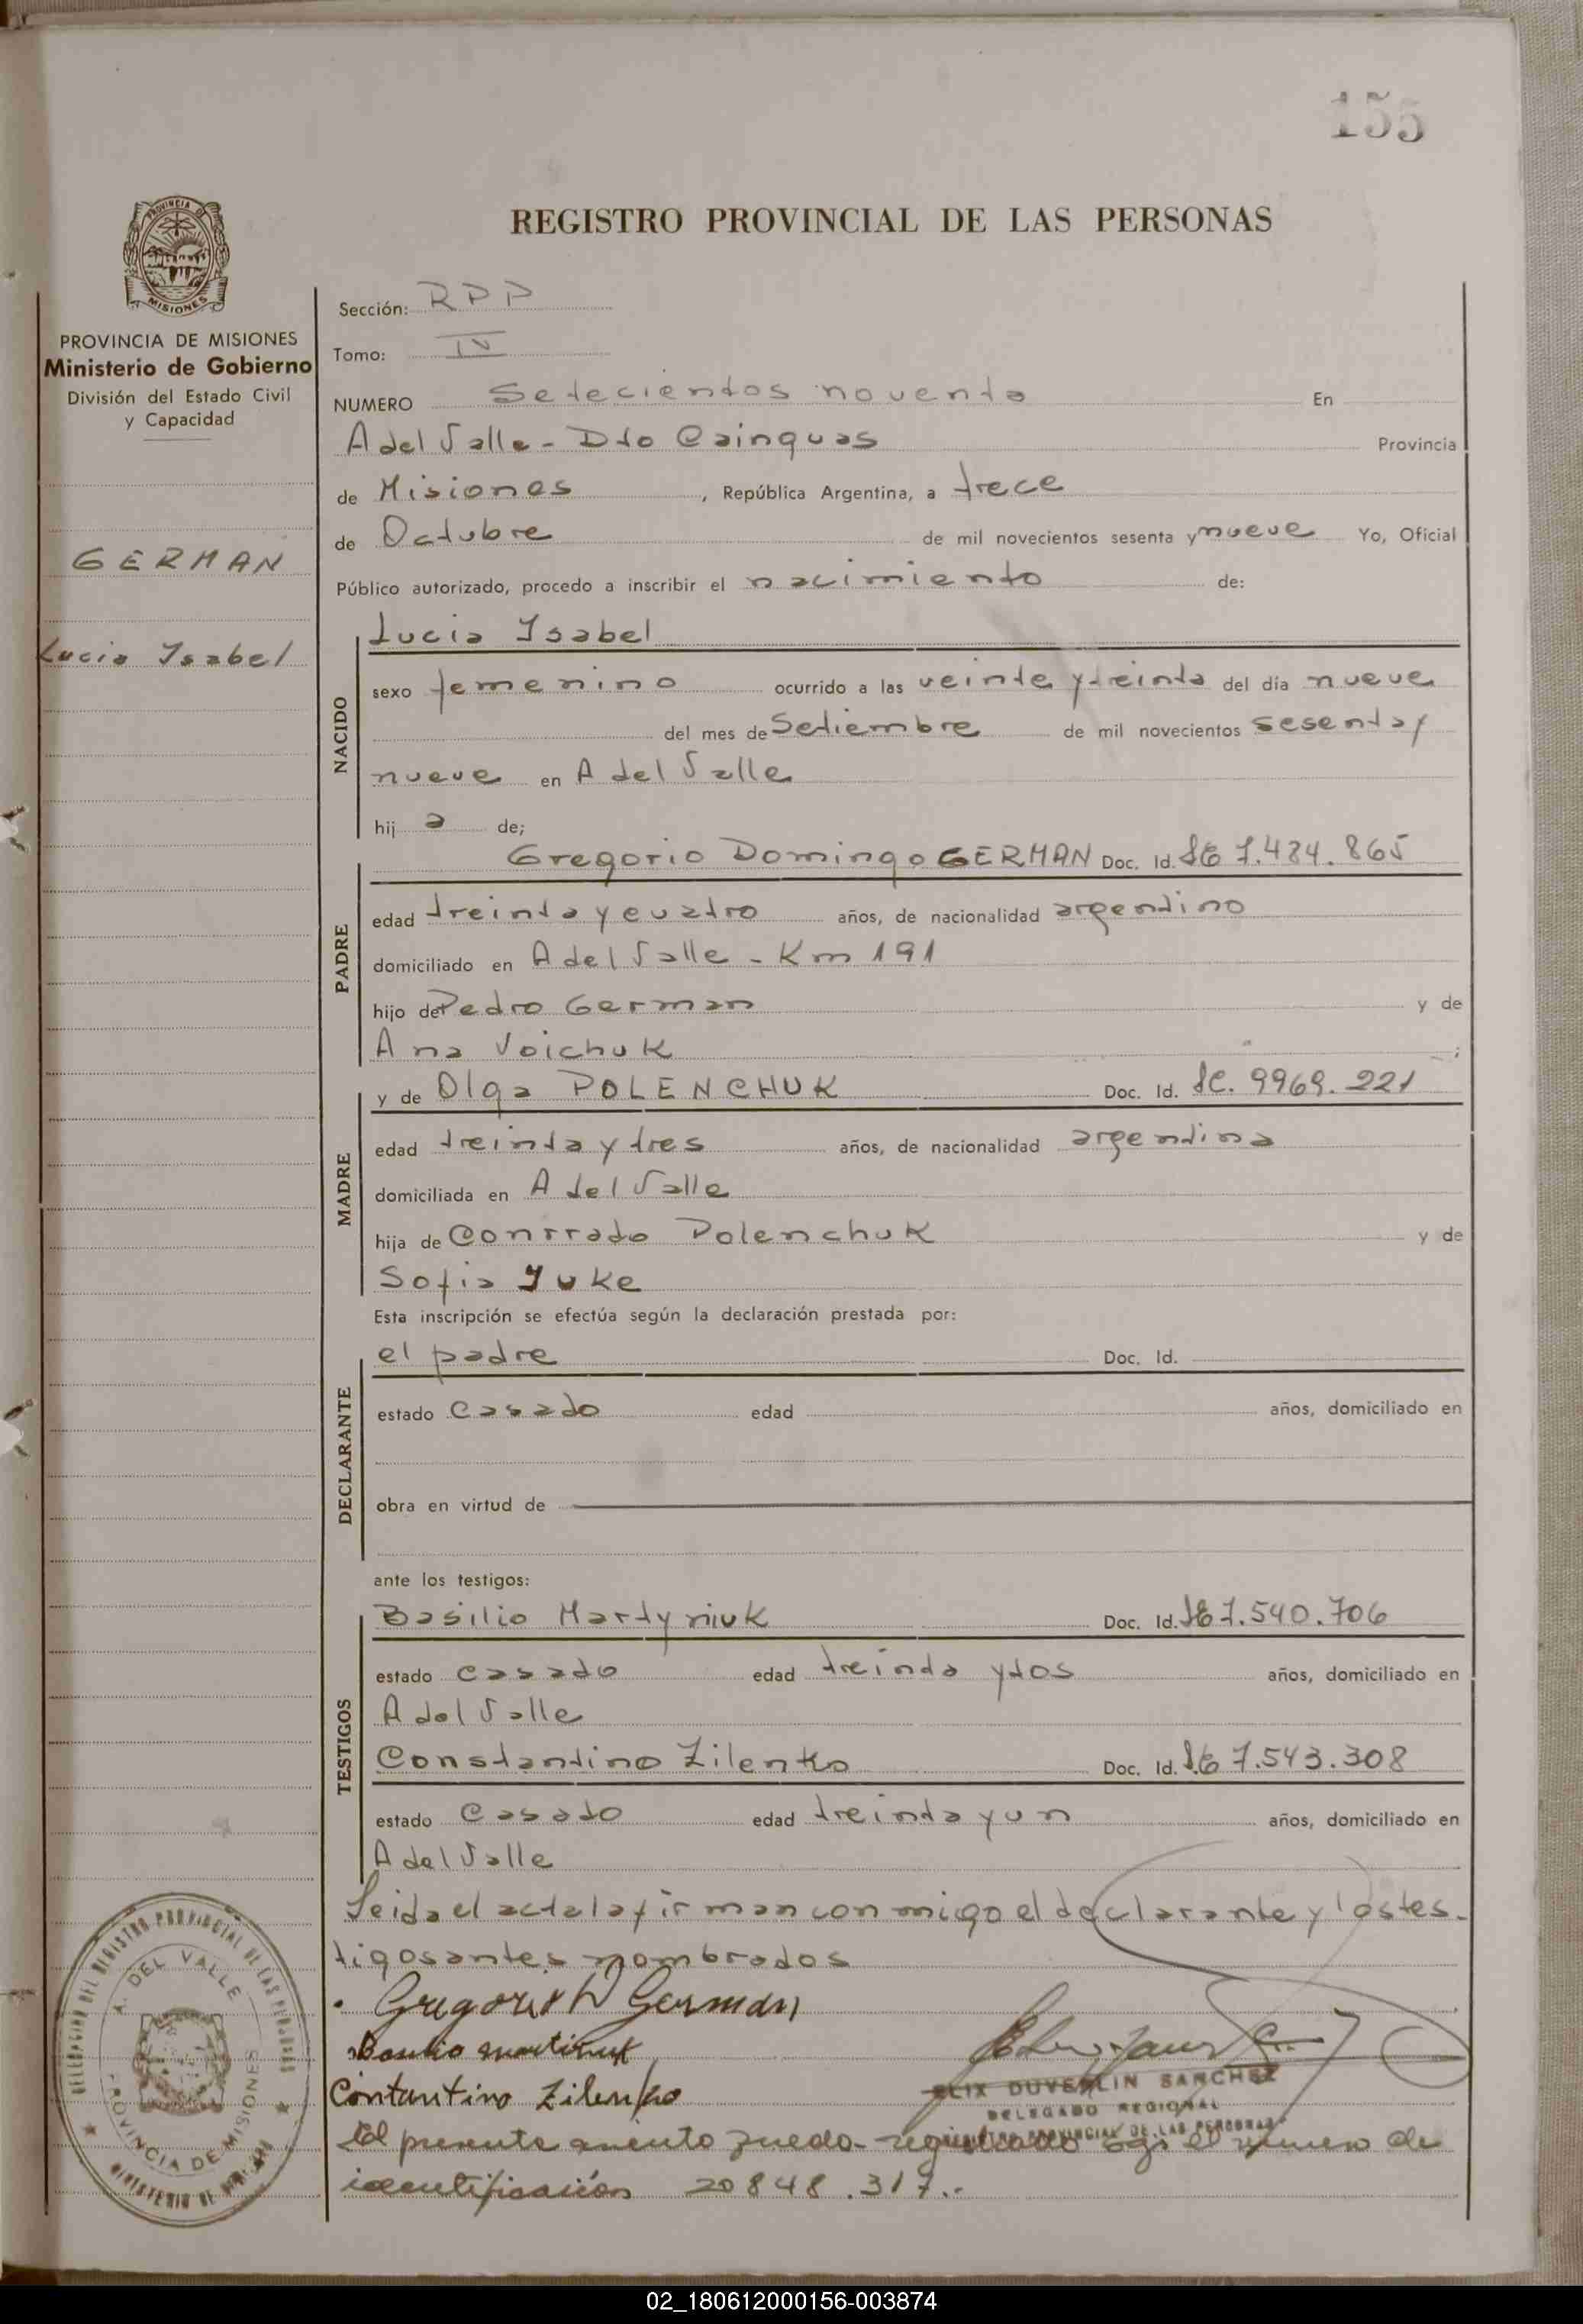 155
PROVINCIA DE
MISIONES
PROVINCIA DE MISIONES
Ministerio de Gobierno
División del Estado Civil
y Capacidad
GERMAN
Lucia Isabel
REGISTRO PROVINCIAL DE LAS PERSONAS
Sección: RPP
Tomo: IV
NUMERO Setecientos noventa En
A del Valle - Dto Cainguas Provincia
de Misiones, República Argentina, a trece
de Octubre de mil novecientos sesenta y nueve Yo, Oficial
Público autorizado, procedo a inscribir el nacimiento de:
NACIDO
Lucia Isabel
sexo femenino ocurrido a las veinte y treinta del día nueve
del mes de Setiembre de mil novecientos sesenta y
nueve en A del Valle
hij a de;
PADRE
Gregorio Domingo GERMAN Doc. Id. LE 7.484.865
edad treinta y cuatro años, de nacionalidad argentino
domiciliado en A del Valle - Km 191
hijo de Pedro German y de
Ana Voichuk ;
MADRE
y de Olga POLENCHUK Doc. Id. LC. 9969.221
edad treinta y tres años, de nacionalidad argentina
domiciliada en A del Valle
hija de Conrrado Polenchuk y de
Sofia Yuke
Esta inscripción se efectúa según la declaración prestada por:
DECLARANTE
el padre Doc. Id.
estado Casado edad años, domiciliado en
obra en virtud de
ante los testigos:
TESTIGOS
Basilio Martyniuk Doc. Id. LE 7.540.706
estado casado edad treinta y dos años, domiciliado en
A del Valle
Constantino Zilenko Doc. Id. LE 7.543.308
estado Casado edad treinta y un años, domiciliado en
A del Valle
Leida el acta la firman con migo el declarante y los tes-
tigos antes nombrados
Gregorio D German
Basilio Martiniuk
Contantino Zilenko
FELIX DUVERLIN SANCHEZ
DELEGADO REGIONAL
REGISTRO PROVINCIAL DE LAS PERSONAS
El presente asiento queda registrado bajo el numero de
identificación 20848.317.-
DELEGACION DEL REGISTRO PROVINCIAL DE LAS PERSONAS
A. DEL VALLE
PROVINCIA DE MISIONES
MINISTERIO DE GOBIERNO
02_180612000156-003874